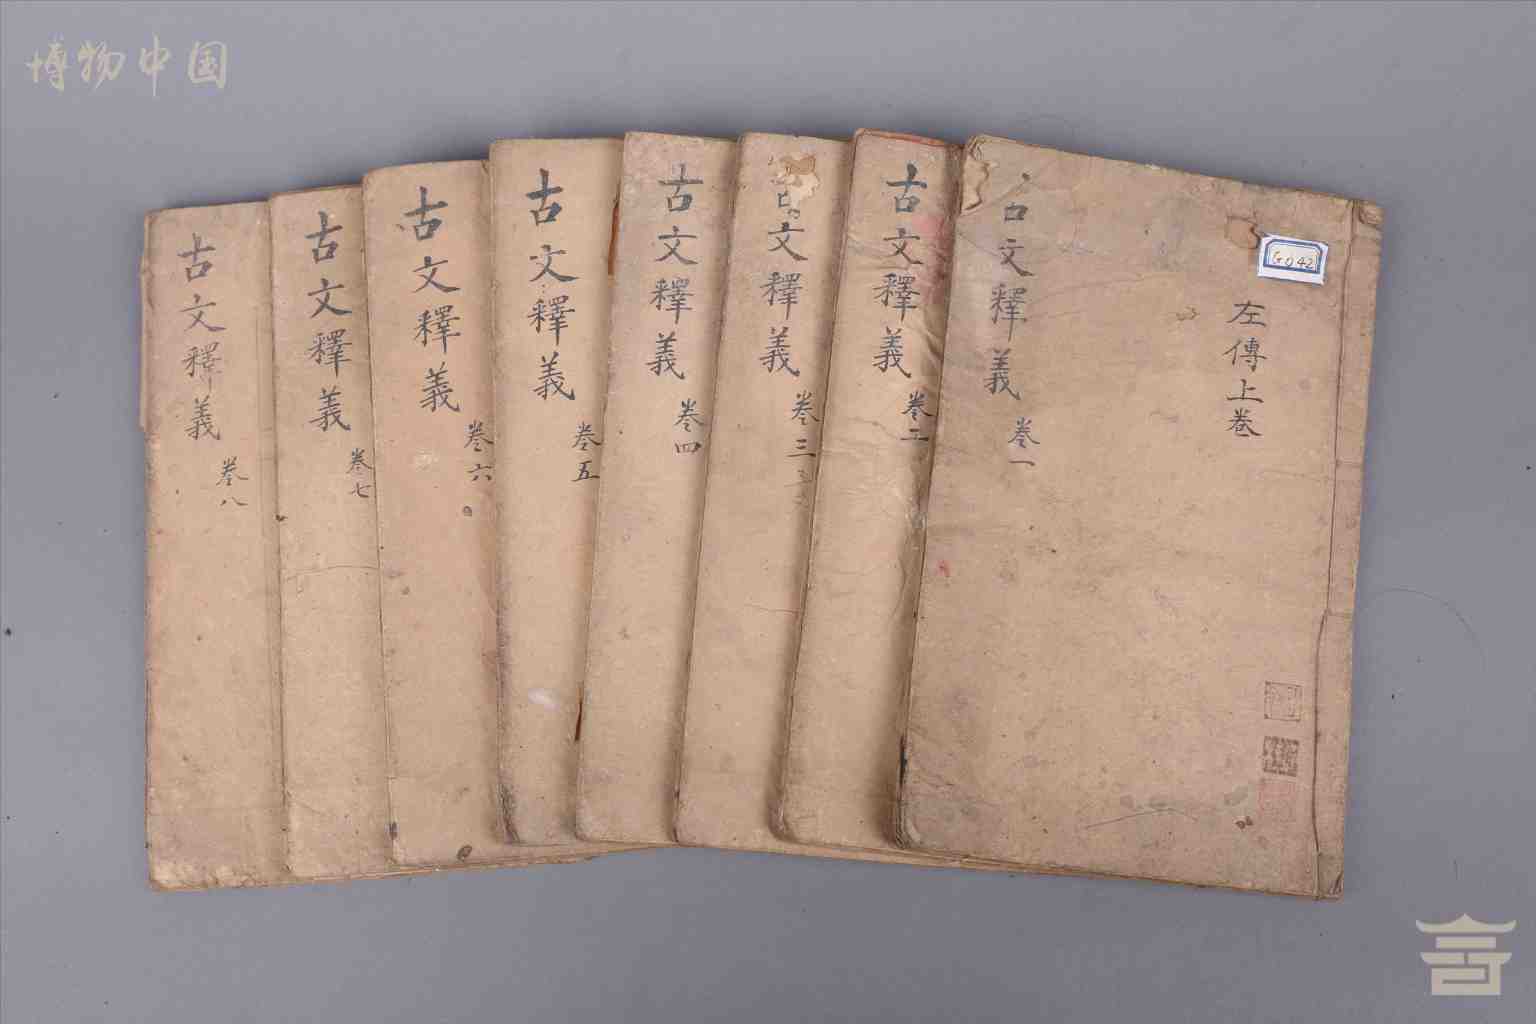 博物中国
G042
左傳上卷
古文釋義
卷一
古文釋義
卷二
古文釋義
卷三
古文釋義
卷四
古文釋義
卷五
古文釋義
卷六
古文釋義
卷七
古文釋義
卷八